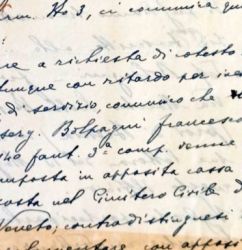 3, ci comunica
re a richiesta di cotesto
tunque con ritardo per
di servizio, comunico che
serg. Bolpagni francesco
140 fant. 3ª comp. venne
mposta in apposita cassa
costa nel Cimitero Civile di
Veneto, contradistinguesi